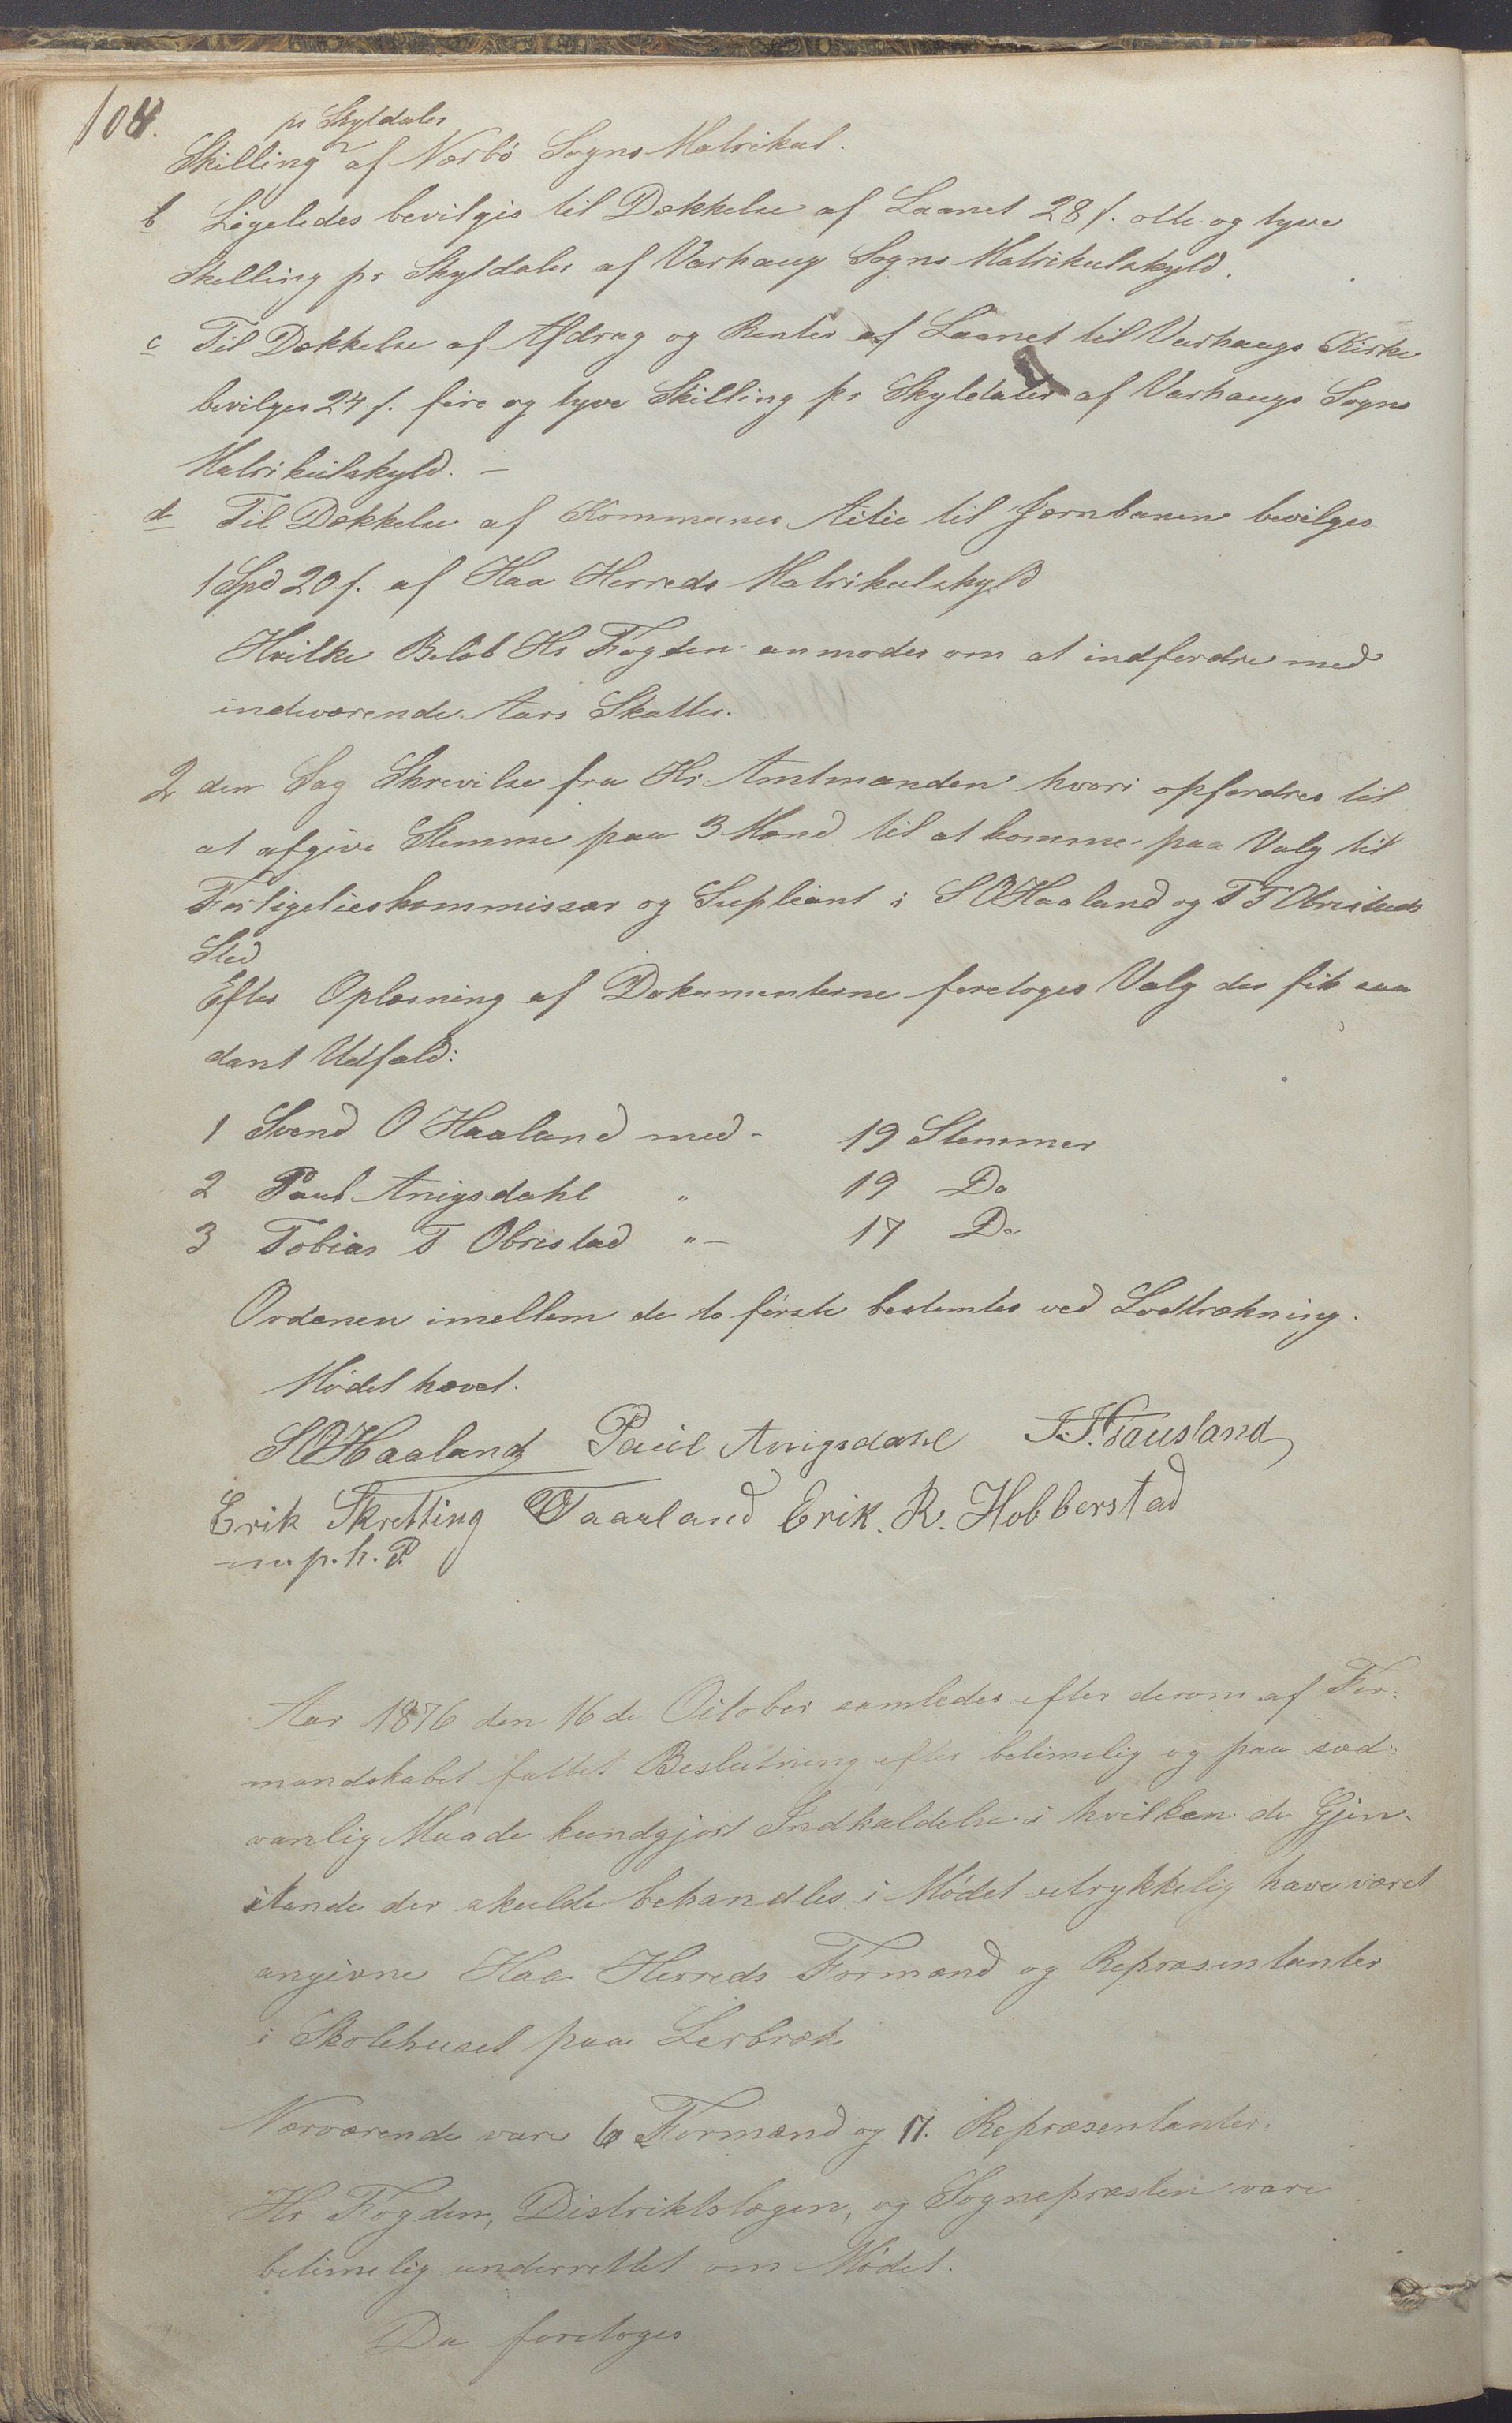 104.
pr Skyldaler
Skilling af Nærbö Sogns Matrikul.
b Ligeledes bevilges til Dækkelse af Laanet 28 f. otte og tyve
Skilling pr Skyldaler af Varhaug Sogns Matrikulskyld.
c Til Dækkelse af Afdrag og Renter af Laanet til Varhaugs Kirke
bevilges 24 f. fire og tyve Skilling pr Skyldaler af Varhaugs Sogns
Matrikulskyld. —
d Til Dækkelse af Kommunes Aktie til Jernbanen bevilges
1 Spd 20 f. af Haa Herreds Matrikulskyld
Hvilke Beløb Hr Fogden anmodes om at indfordre med
indeværende Aars Skatter.
2 den Sag Skrivelse fra Hr Amtmanden hvori opfordres til
at afgive Stemme paa 3 Mænd til at komme paa Valg til
Forligelseskommissær og Supleant i S O Haaland og T T Obrestads
Sted
Efter Oplæsning af Dokumenterne foretoges Valg der fik saa
dant Udfald:
1 Svend O Haaland med - 19 Stemmer
2 Paul Anigsdahl " 19 Do
3 Tobias T Obristad " - 17 Do
Ordenen imellem de to förste bestemtes ved Lodtrækning.
Mödet hævet.
S O Haaland Paul Anigsdahl J. J. Gausland
Erik Skretting O Taarland Erik. R. Hobberstad
m. p. h. P.
Aar 1876 den 16 de October samledes efter derom af For-
mandskabet fattet Beslutning efter betimelig og paa sæd-
vanlig Maade kundgjort Indkaldelse i hvilken de Gjen-
stande der skulde behandles i Mödet utrykkelig have været
angivne Haa Herreds Formænd og Repræsentanter
i Skolehuset paa Lerbræk
Nærværende vare 6 Formænd og 17. Repræsentanter.
Hr Fogden, Distriktslægen, og Sognepræsten vare
betimelig underrettet om Mödet.
Da foretoges